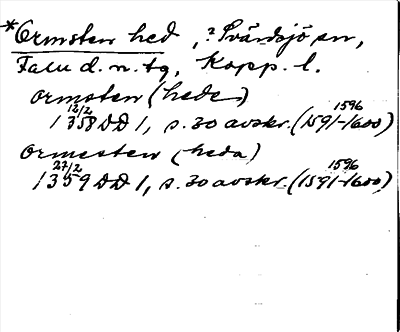 *Ormsten hed, ? Svärdsjö sn,
Falu d. n. tg, Kopp. l.
ormsten (hede)
12/2 1596
1358 DD 1, s. 30 avskr. (1591-1600)
ormesten (heda)
27/2 1596
1359 DD 1, s. 30 avskr. (1591-1600)